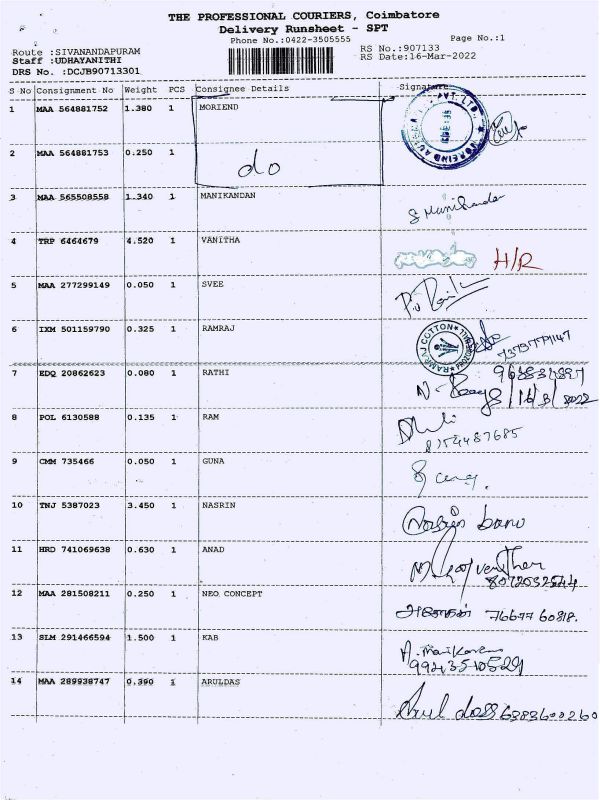 THE PROFESSIONAL COURIERS, Coimbatore
Delivery Runsheet - SPT
Phone No.:0422-3505555
Page No.:1
Route :SIVANANDAPURAM
Staff :UDHAYANITHI
DRS No. :DCJB90713301
RS No.:907133
RS Date:16-Mar-2022
S No Consignment No Weight PCS Consignee Details Signature
1 MAA 564881752 1.380 1 MORIEND
2 MAA 564881753 0.250 1 do
3 MAA 565508558 1.340 1 MANIKANDAN
4 TRP 6464679 4.520 1 VANITHA H/R
5 MAA 277299149 0.050 1 SVEE
6 IXM 501159790 0.325 1 RAMRAJ RAMRAJ COTTON
7 EDQ 20862623 0.080 1 RATHI 16/3/2022
8 POL 6130588 0.135 1 RAM 8154487685
9 CMM 735466 0.050 1 GUNA
10 TNJ 5387023 3.450 1 NASRIN Nasrin banu
11 HRD 741069638 0.630 1 ANAD 8072032544
12 MAA 281508211 0.250 1 NEO CONCEPT 76677 60818.
13 SLM 291466594 1.500 1 KAB 9943510529
14 MAA 289938747 0.390 1 ARULDAS Arul doss 6383600260